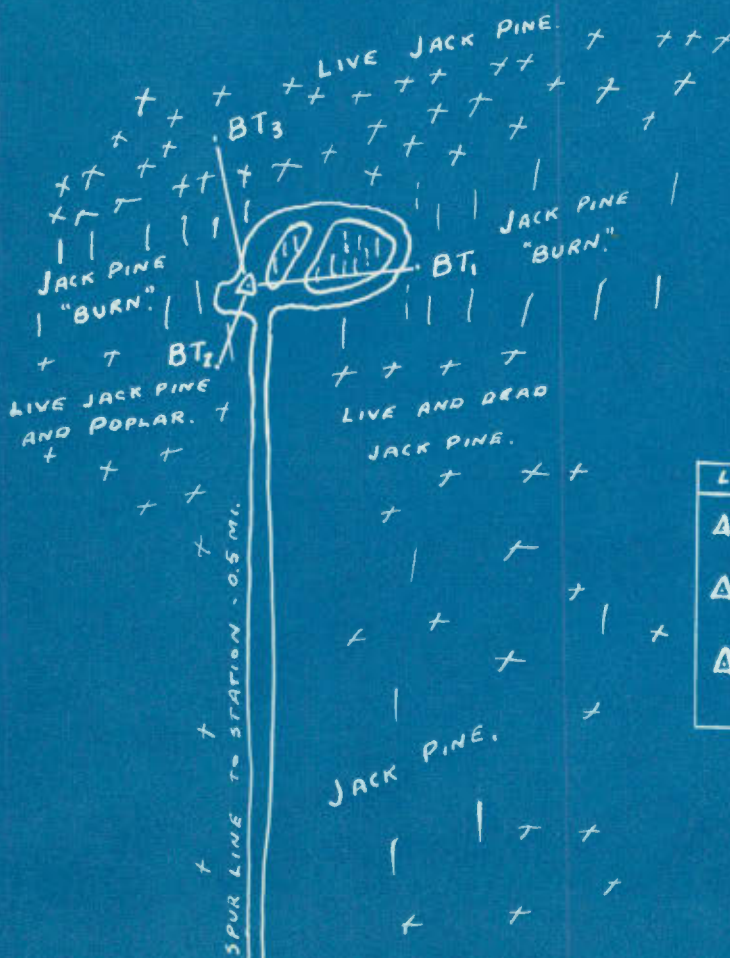 LIVE JACK PINE.
BT3
JACK PINE
"BURN."
BT1
JACK PINE
"BURN."
BT2.
LIVE JACK PINE
AND POPLAR.
LIVE AND DEAD
JACK PINE.
SPUR LINE TO STATION - 0.5 MI.
JACK PINE.